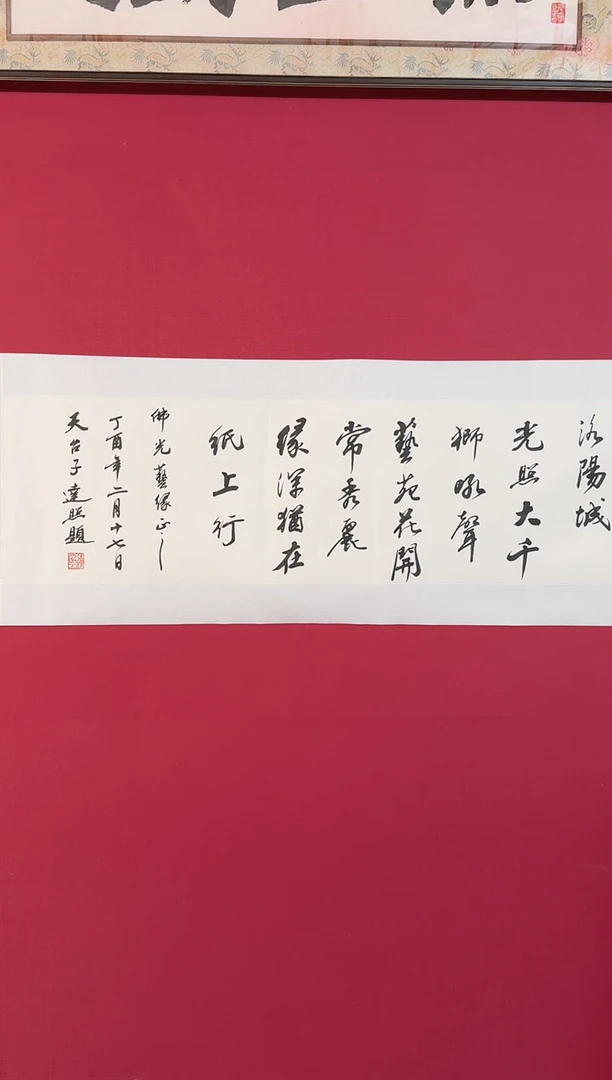 洛陽城
光照大千
獅吼聲
藝苑花開
常秀麗
緣深猶在
紙上行
佛光藝緣正之
丁酉年二月十七日
天台子達照題